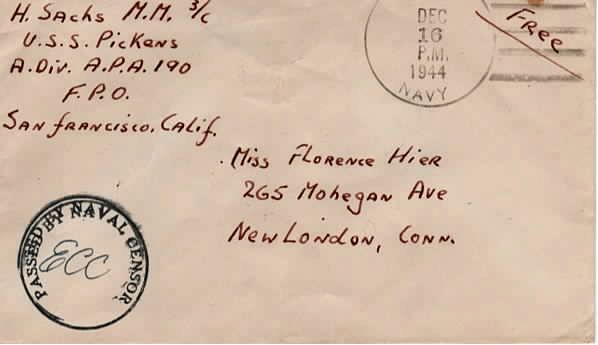 H. Sachs M.M. 3/c
U.S.S. Pickens
A. Div. A.P.A. 190
F.P.O.
San francisco. Calif.
DEC
16
P.M.
1944
NAVY
Free
Miss Florence Hier
265 Mohegan Ave
New London, Conn.
PASSED BY NAVAL CENSOR
ECC